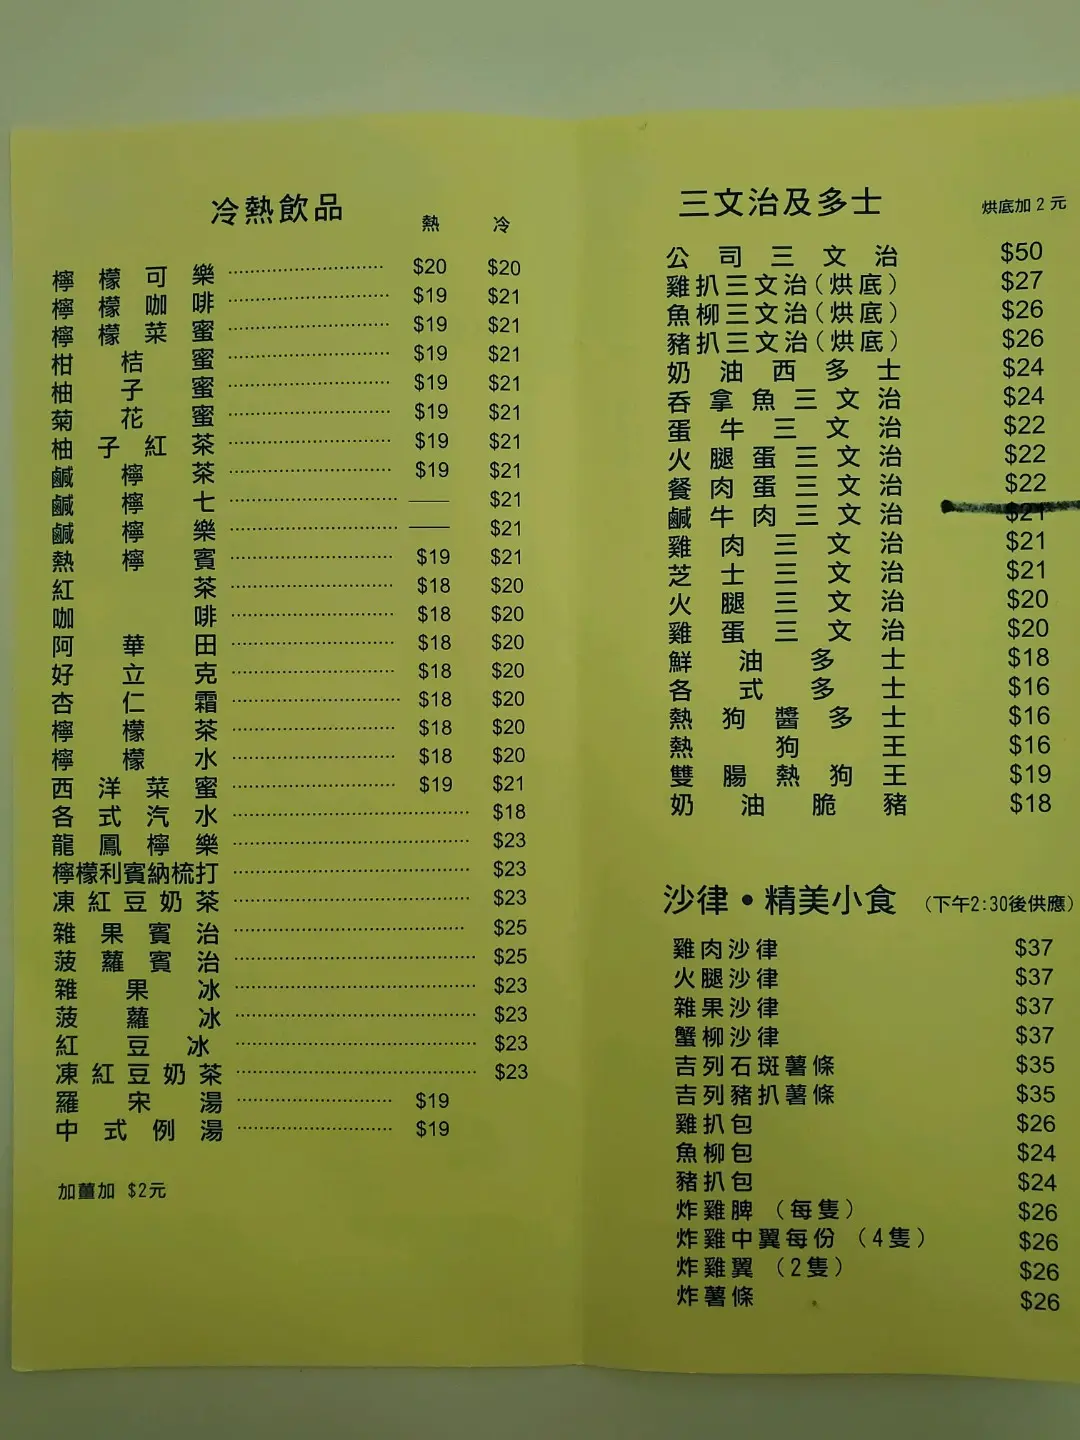 冷熱飲品
熱 冷
檸檬可樂 $20 $20
檸檬咖啡 $19 $21
檸檬菜蜜 $19 $21
柑桔蜜 $19 $21
柚子蜜 $19 $21
菊花蜜 $19 $21
柚子紅茶 $19 $21
鹹檸茶 $19 $21
鹹檸七 —— $21
鹹檸樂 —— $21
熱檸賓 $19 $21
紅茶 $18 $20
咖啡 $18 $20
阿華田 $18 $20
好立克 $18 $20
杏仁霜 $18 $20
檸檬茶 $18 $20
檸檬水 $18 $20
西洋菜蜜 $19 $21
各式汽水 $18
龍鳳檸樂 $23
檸檬利賓納梳打 $23
凍紅豆奶茶 $23
雜果賓治 $25
菠蘿賓治 $25
雜果冰 $23
菠蘿冰 $23
紅豆冰 $23
凍紅豆奶茶 $23
羅宋湯 $19
中式例湯 $19
加薑加 $2元
三文治及多士 烘底加 2 元
公司三文治 $50
雞扒三文治(烘底) $27
魚柳三文治(烘底) $26
豬扒三文治(烘底) $26
奶油西多士 $24
吞拿魚三文治 $24
蛋牛三文治 $22
火腿蛋三文治 $22
餐肉蛋三文治 $22
鹹牛肉三文治 $21
雞肉三文治 $21
芝士三文治 $21
火腿三文治 $20
雞蛋三文治 $20
鮮油多士 $18
各式多士 $16
熱狗醬多士 $16
熱狗王 $16
雙腸熱狗王 $19
奶油脆豬 $18
沙律•精美小食 (下午2:30後供應)
雞肉沙律 $37
火腿沙律 $37
雜果沙律 $37
蟹柳沙律 $37
吉列石斑薯條 $35
吉列豬扒薯條 $35
雞扒包 $26
魚柳包 $24
豬扒包 $24
炸雞脾 (每隻) $26
炸雞中翼每份 (4隻) $26
炸雞翼 (2隻) $26
炸薯條 $26